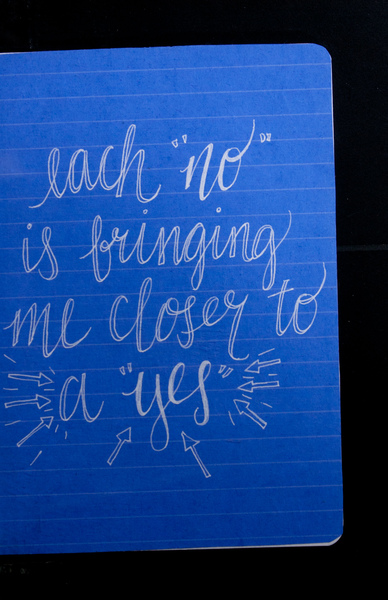 each "no"
is bringing
me closer to
a "yes"